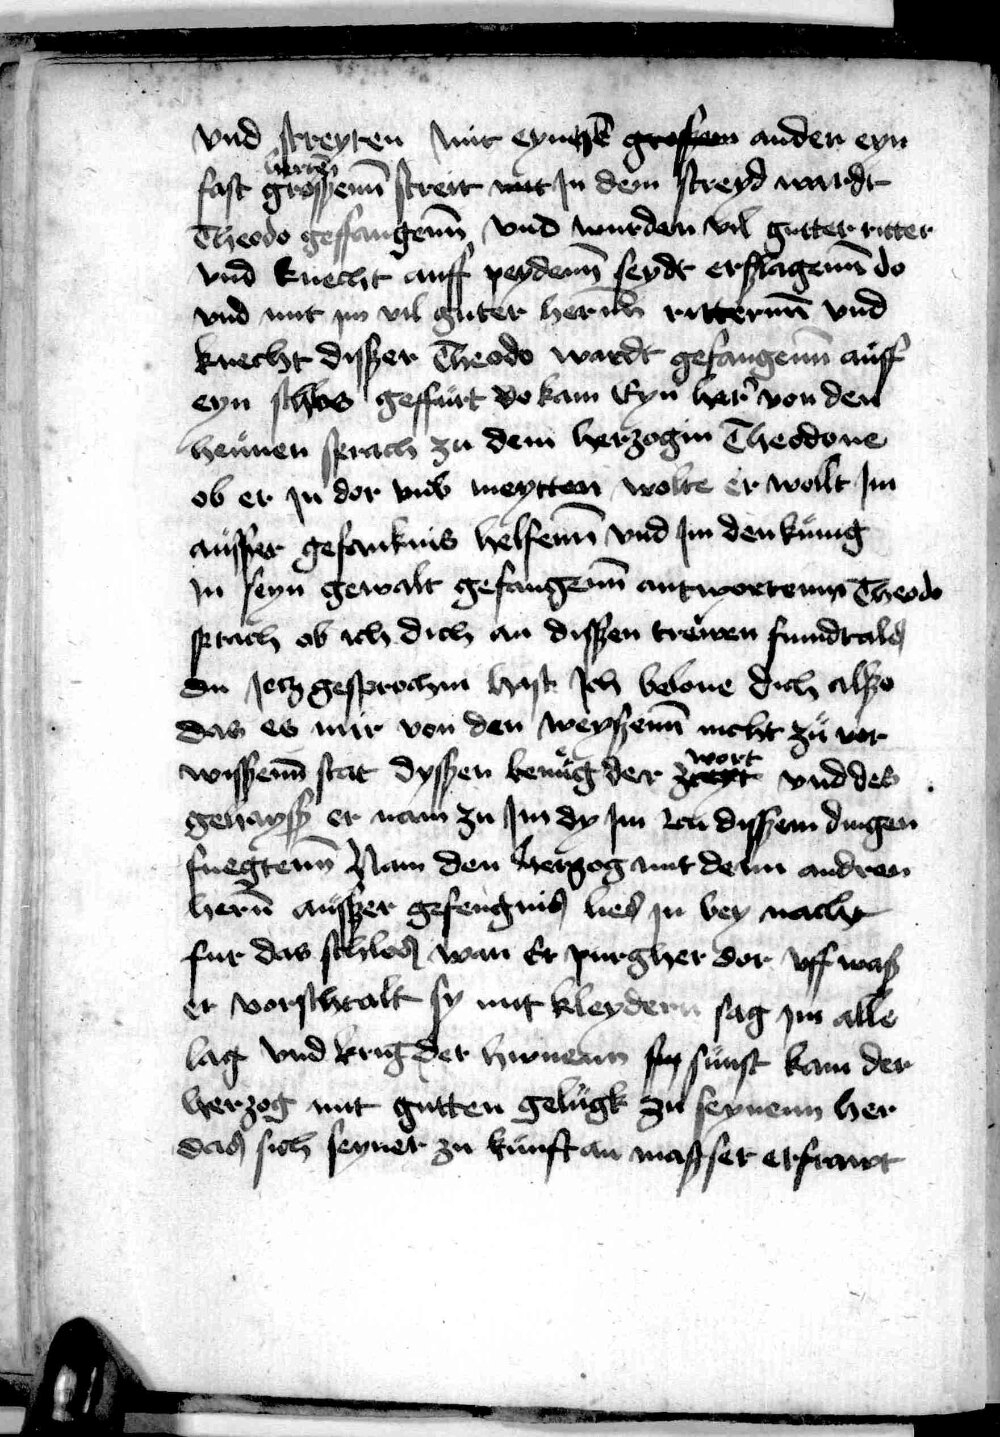 vnd streyten mit eynthē grossem ander eyn
fast grossenn herten streit mit Jn dem streyd wardt
Theodo geffangenn vnd wurden vil gutter ritter
vnd knecht auff peydenn seydt erslagenn do
vnd mit jm vil guter herrnn ritternn vnd
knecht disser Theodo wardt gefangenn auff
eyn schlos geffürt do kam Eyn her von den
heunen sprach zu dem herzogin Theodone
ob er jn dor vmb meytten wolte er wollt Jm
ausser gefanknis helfenn vnd Jm den kunig
Jn seyn gewalt gefangenn antwortenn Theodo
sprach ob ich dich an dissen trewen
du Jetz gesprochen hast Jch belone dich also
das es mir von den weyssenn nicht zu vor
wissenn stat dyssen benug der wort vnd des
gehayss er nam zu Jm dy Jm zu dissem dingen
fuegtenn Nam den herzog mit denn andren
hernn ausser gefengnis lies jn bey nacht
fur das schlos wan Er purgher dor vff was
er vorschtalt sy mit kleydern sag jm alle
lag vnd krig der hewnenn sunst kam der
herzog mit gutten gelugk zu seynenn her
das sich seyner zu kunft an masser erfrawt